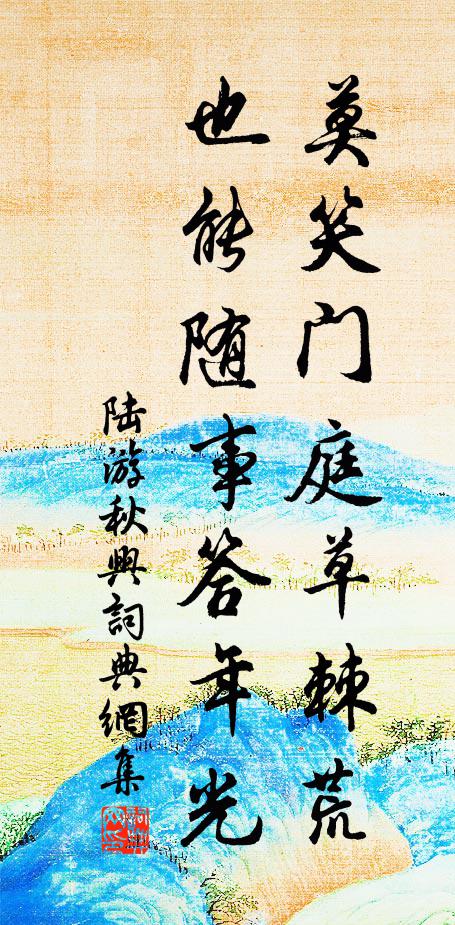 莫笑门庭草棘荒
也能随事答年光
陆游秋興詞典網集